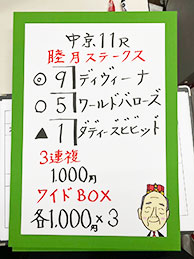 中京11R
睦月ステークス
◎9ディヴィーナ
○5ワールドバローズ
▲1ダディーズビビッド
3連複
1000円
ワイドBOX
各1,000円×3